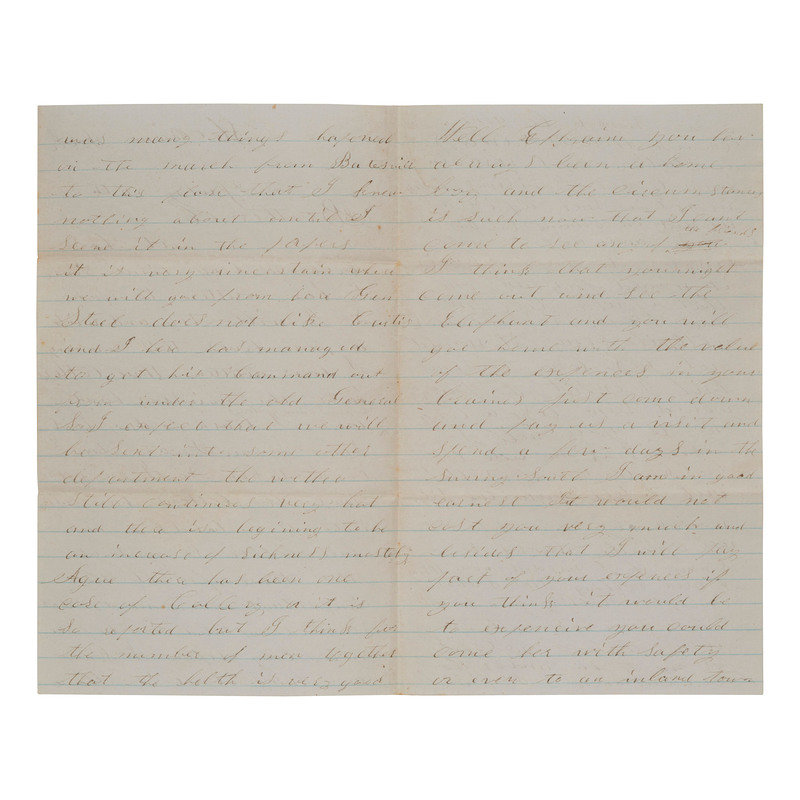 was many things hapened
on the march from Batesvill
to this place that I knew
nothing about until I
seene it in the papers
it is very uncertain where
we will goe from here Gen
Steel does not like Curtis
and I hear has managed
to get his Command out
from under the old General
So I expect that we will
be sent into some other
department the wether
Still continues very hot
and there is begining to be
an increase of sickness mostly
Ague there has been one
case of as it is
So reported but I think for
the number of men together
that the helth is very good
Well Ephraim you have
always been a home
boy and the circumstances
is such now that I cant
come to see any of the friends
I think that you might
Come out and see the
Elephant and you will
goe home with the value
of the expences in your
brains just come down
and pay us a visit and
spend a few days in the
Sunny South I am in good
earnest It would not
cost you very much and
besides that I will pay
part of your expences if
you think it would be
to expencive you could
Come her with safety
or even to an inland town